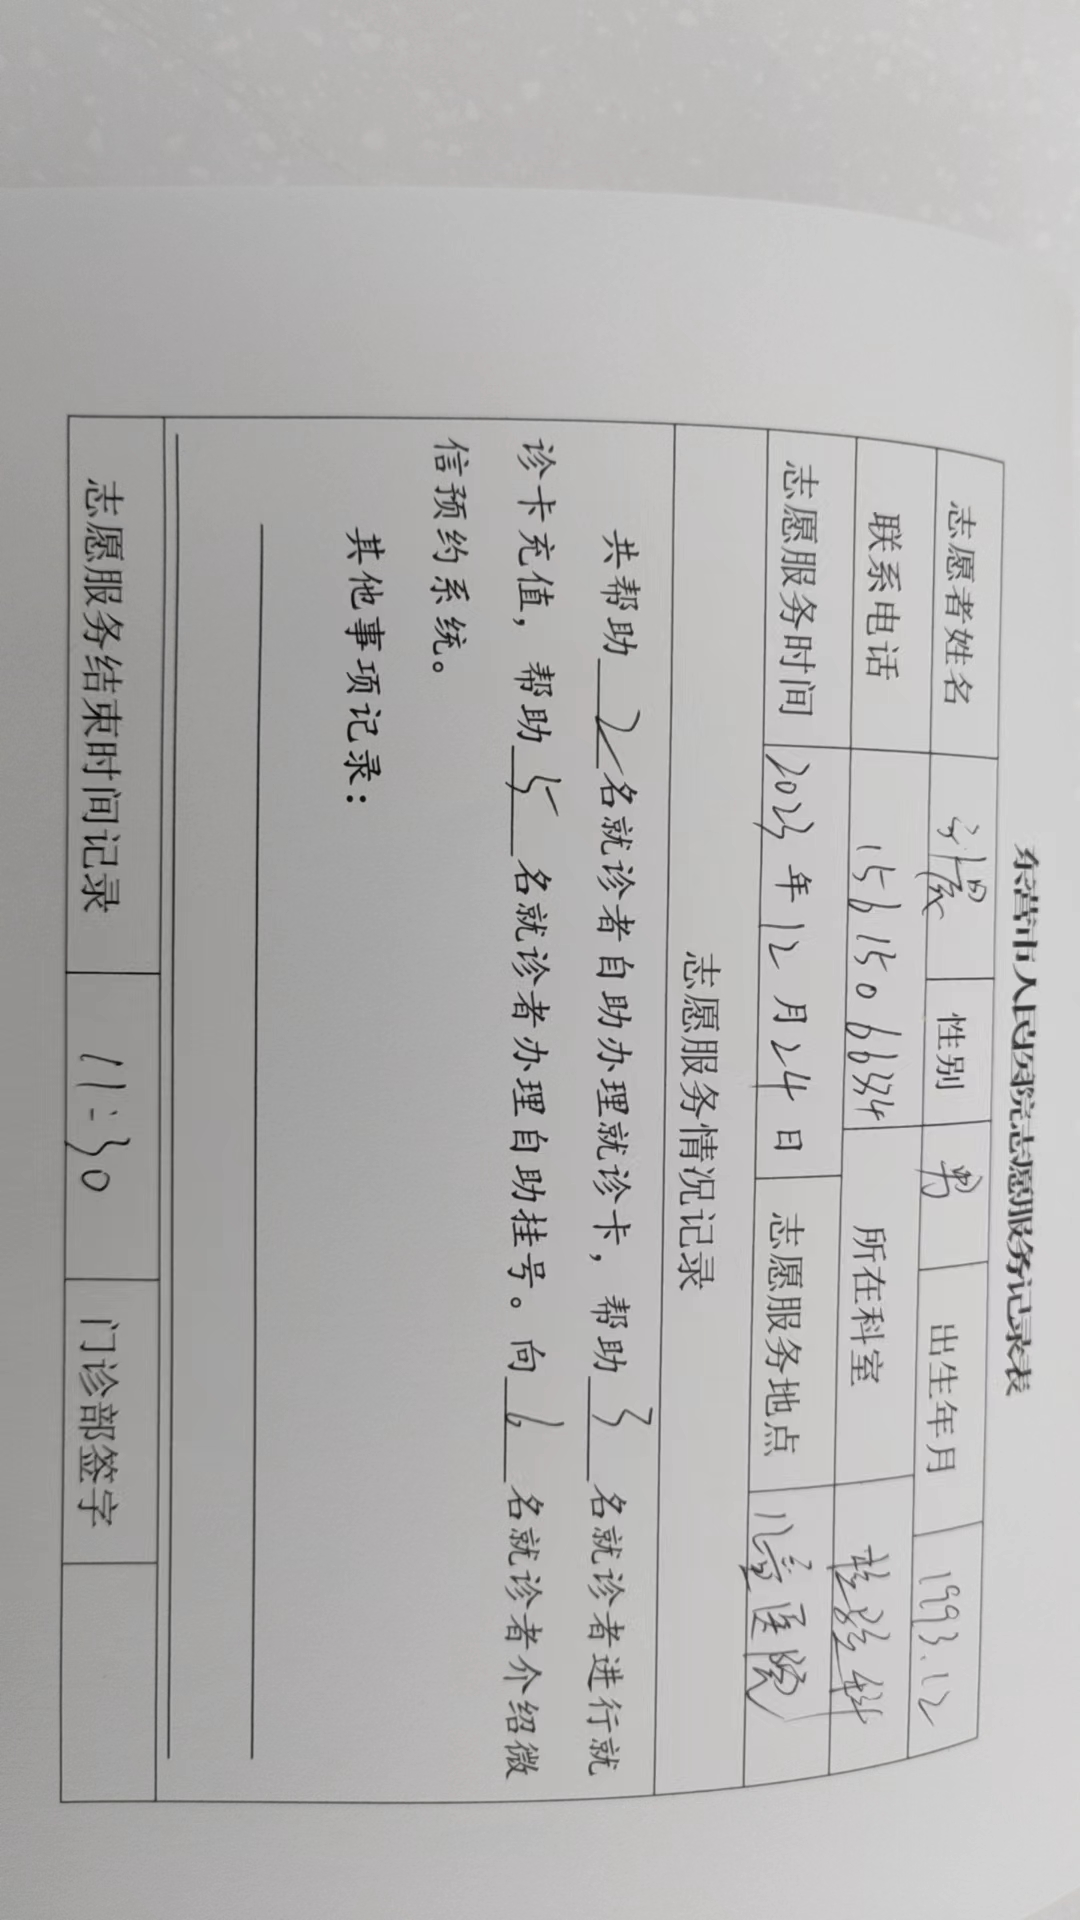 东营市人民医院志愿服务记录表
志愿者姓名 性别 男 出生年月 1993.12
联系电话 15615066334 所在科室 检验科
志愿服务时间 2023年12月24日 志愿服务地点 儿童医院
志愿服务情况记录
共帮助2名就诊者自助办理就诊卡，帮助3名就诊者进行就
诊卡充值，帮助5名就诊者办理自助挂号。向6名就诊者介绍微
信预约系统。
其他事项记录：
志愿服务结束时间记录 11:30 门诊部签字